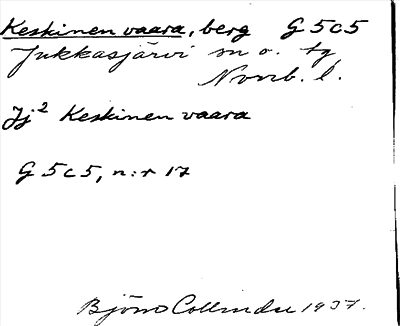 Keskinen vaara, berg G 5 c 5
Jukkasjärvi sn o. tg
Norrb. l.
Jj² Keskinen vaara
G 5 c 5, n:r 17
Björn Collinder 1937.